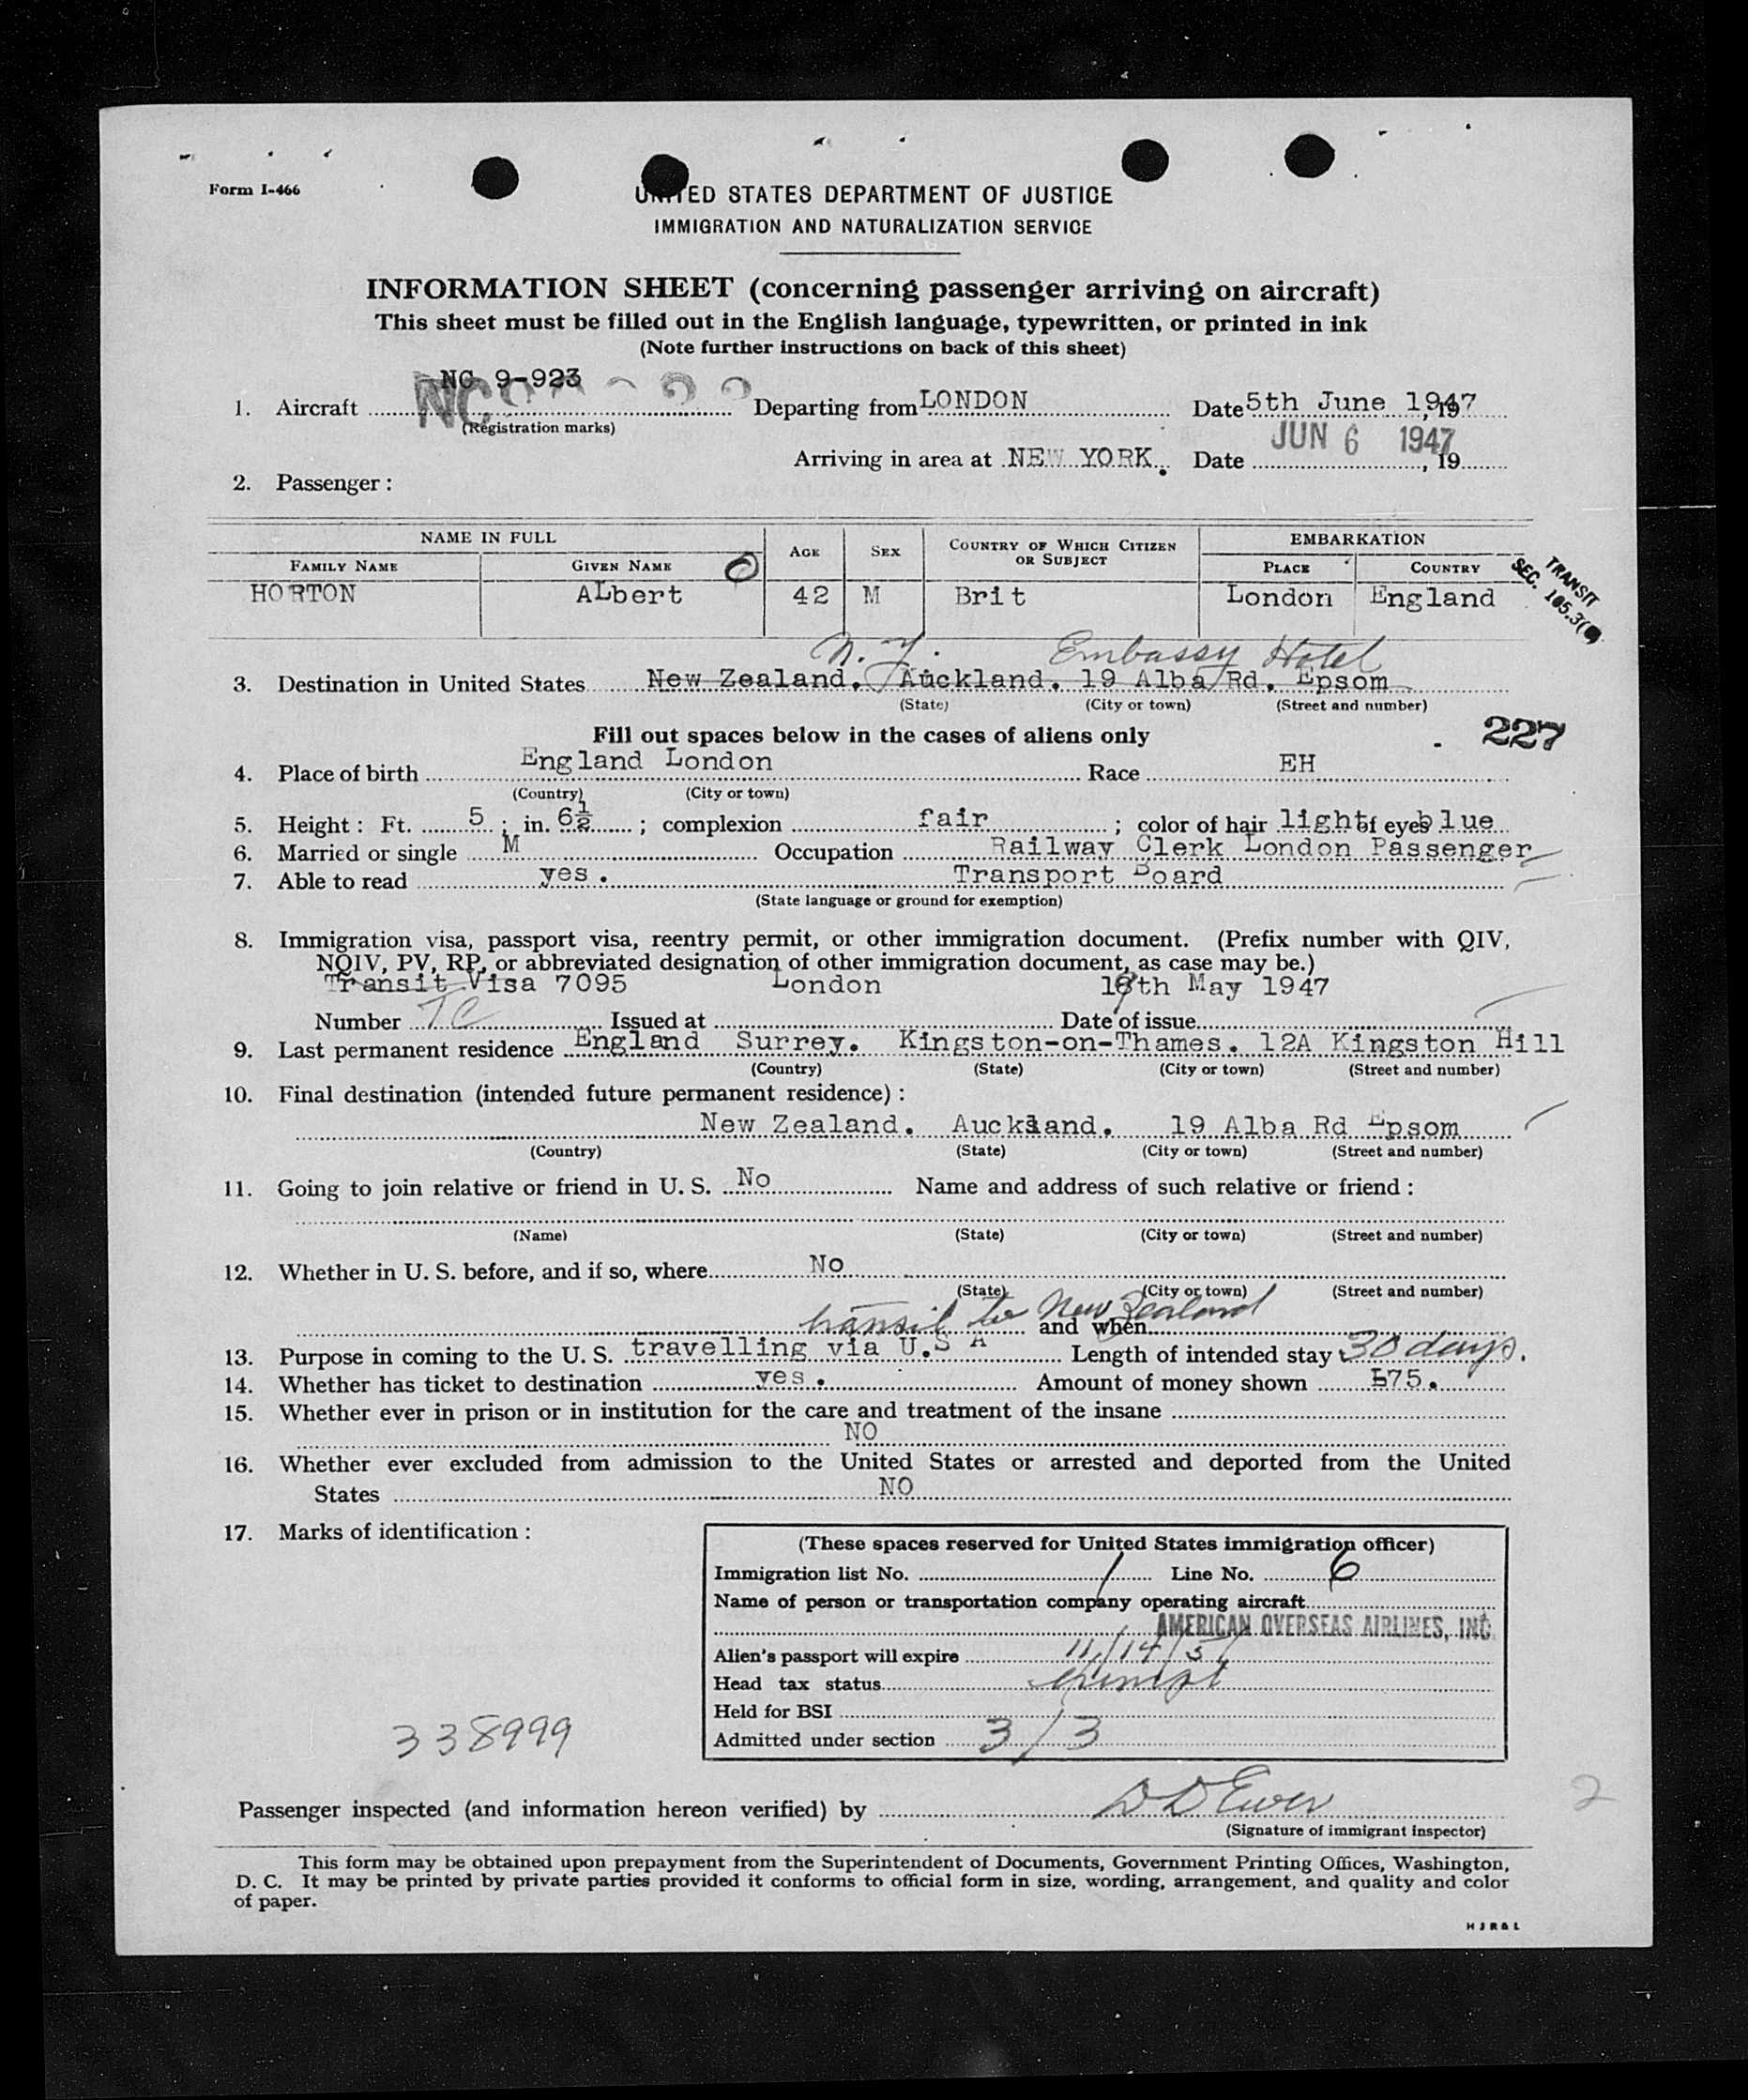 Form I-466
UNITED STATES DEPARTMENT OF JUSTICE
IMMIGRATION AND NATURALIZATION SERVICE
INFORMATION SHEET (concerning passenger arriving on aircraft)
This sheet must be filled out in the English language, typewritten, or printed in ink
(Note further instructions on back of this sheet)
NC 9-923
1. Aircraft NC Departing from LONDON Date 5th June 1947, 19
(Registration marks)
JUN 6 1947
Arriving in area at NEW YORK. Date , 19
2. Passenger:
NAME IN FULL AGE SEX COUNTRY OF WHICH CITIZEN OR SUBJECT EMBARKATION
FAMILY NAME GIVEN NAME PLACE COUNTRY
HORTON ALbert 42 M Brit London England
TRANSIT
SEC. 105.3(
N.Y. Embassy Hotel
3. Destination in United States New Zealand. Auckland. 19 Alba Rd. Epsom
(State) (City or town) (Street and number)
227
Fill out spaces below in the cases of aliens only
4. Place of birth England London Race EH
(Country) (City or town)
5. Height: Ft. 5; in. 6½; complexion fair; color of hair light of eyes blue
6. Married or single M Occupation Railway Clerk London Passenger
7. Able to read yes. Transport Board
(State language or ground for exemption)
8. Immigration visa, passport visa, reentry permit, or other immigration document. (Prefix number with QIV,
NQIV, PV, RP, or abbreviated designation of other immigration document, as case may be.)
Transit Visa 7095 London 1 th May 1947
Number TC Issued at Date of issue
9. Last permanent residence England Surrey. Kingston-on-Thames. 12A Kingston Hill
(Country) (State) (City or town) (Street and number)
10. Final destination (intended future permanent residence):
New Zealand. Auckland. 19 Alba Rd Epsom
(Country) (State) (City or town) (Street and number)
11. Going to join relative or friend in U. S. No Name and address of such relative or friend:
(Name) (State) (City or town) (Street and number)
12. Whether in U. S. before, and if so, where No
(State) (City or town) (Street and number)
transit to New Zealand
and when
13. Purpose in coming to the U. S. travelling via U.S A Length of intended stay 30 days.
14. Whether has ticket to destination yes. Amount of money shown £75.
15. Whether ever in prison or in institution for the care and treatment of the insane
NO
16. Whether ever excluded from admission to the United States or arrested and deported from the United
States NO
17. Marks of identification:
(These spaces reserved for United States immigration officer)
Immigration list No. 1 Line No. 6
Name of person or transportation company operating aircraft
AMERICAN OVERSEAS AIRLINES, INC.
Alien's passport will expire 11/14/51
Head tax status exempt
Held for BSI
Admitted under section 3/3
338999
Passenger inspected (and information hereon verified) by D D Ewer
2
(Signature of immigrant inspector)
This form may be obtained upon prepayment from the Superintendent of Documents, Government Printing Offices, Washington,
D. C. It may be printed by private parties provided it conforms to official form in size, wording, arrangement, and quality and color
of paper.
H J R & L